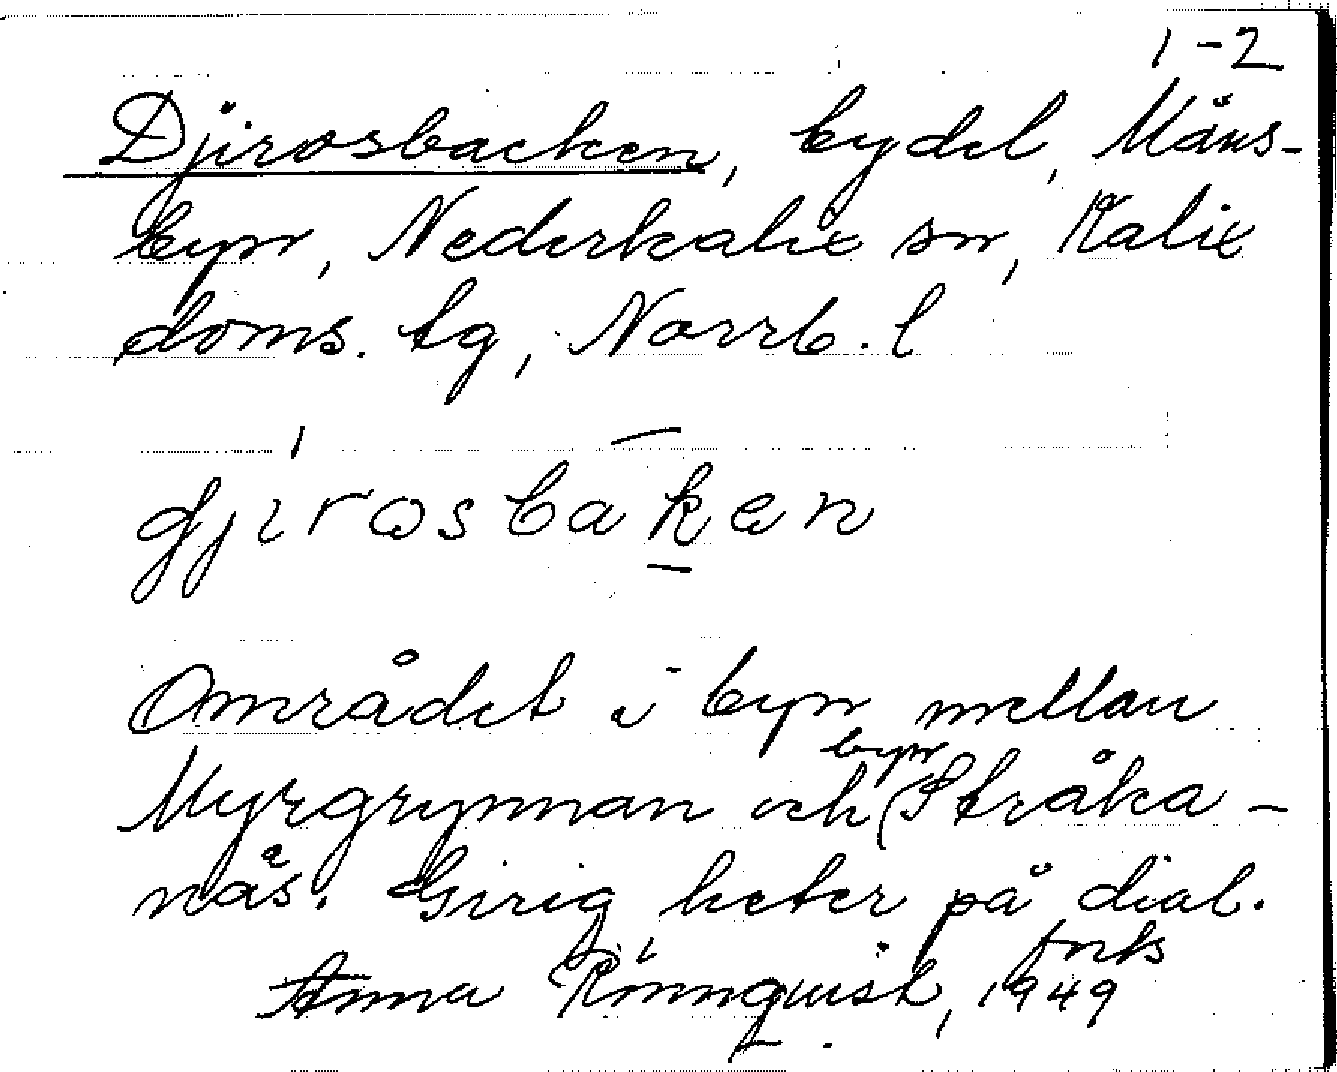 1-2
Djirosbacken, bydel, Måns-
byn, Nederkalix sn, Kalix
doms. tg, Norrb. l
djirosbaken
Området i byn mellan
Myrgrynnan och byn Stråka-
näs. Girig heter på dial.
forts
Anna Rönnquist, 1949